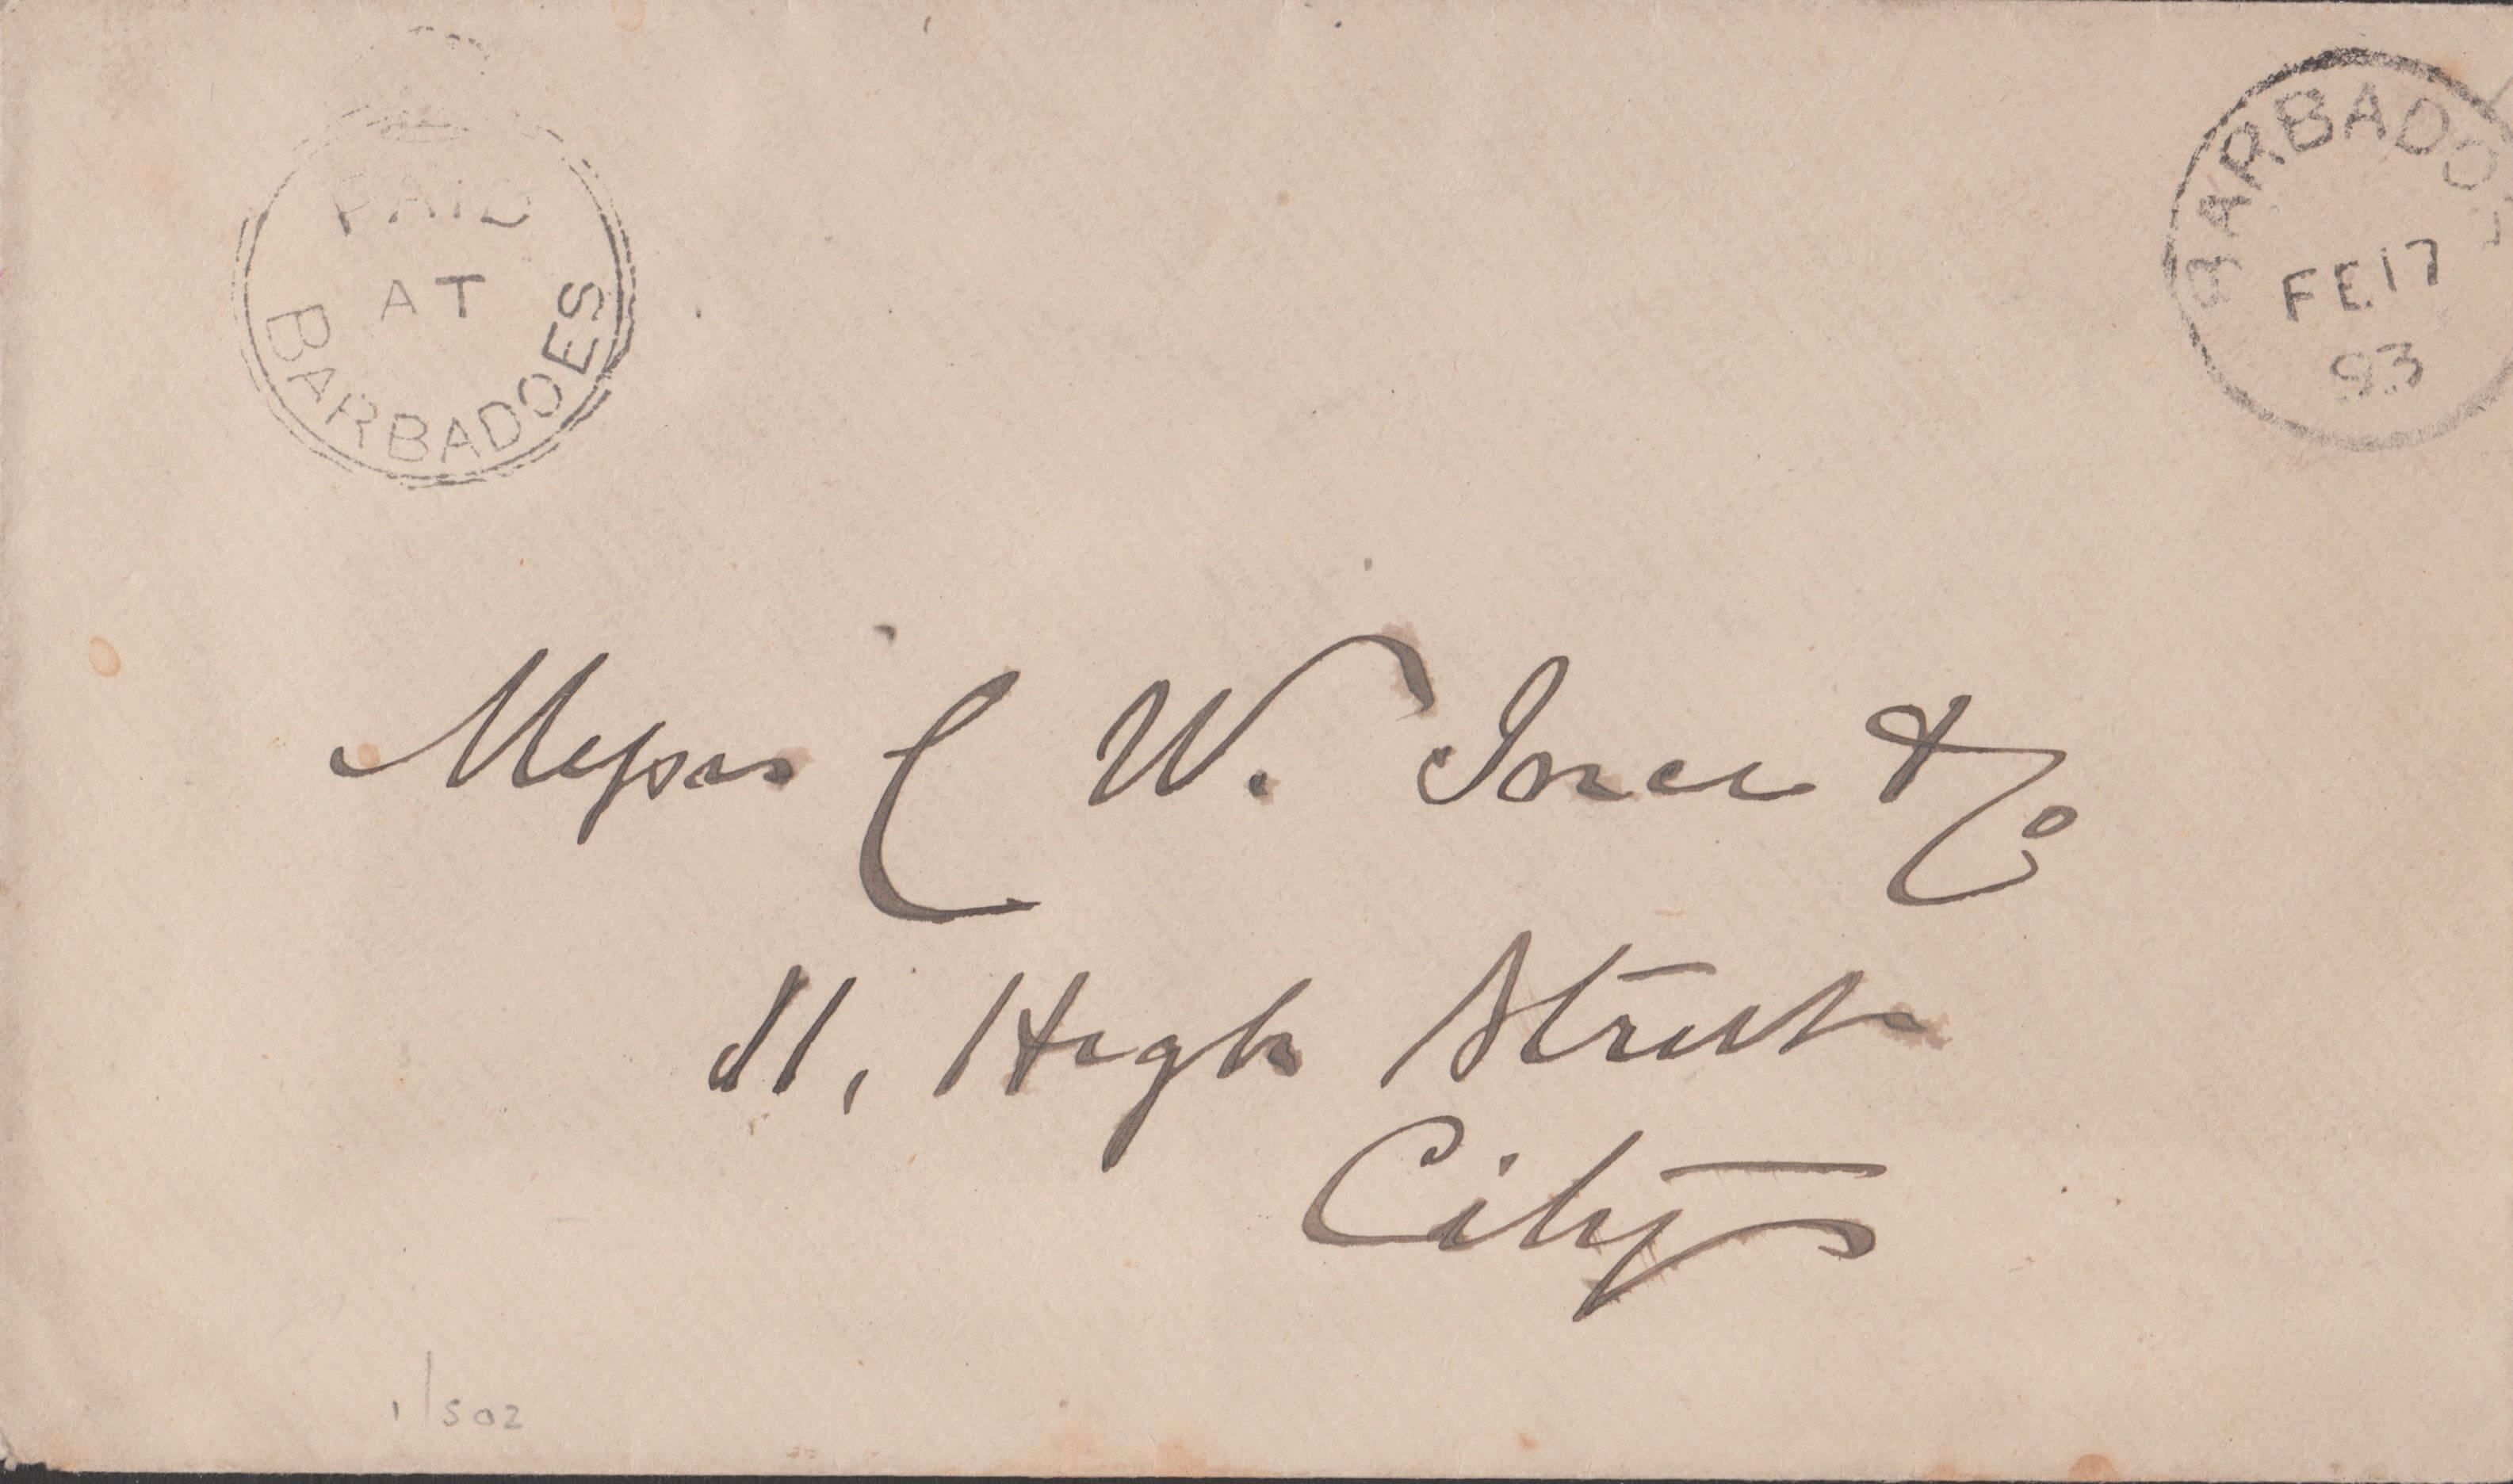 PAID
AT
BARBADOES
BARBADO
FE 17
93
Messrs C W. Ince & Co
11, High Street
City
1/502